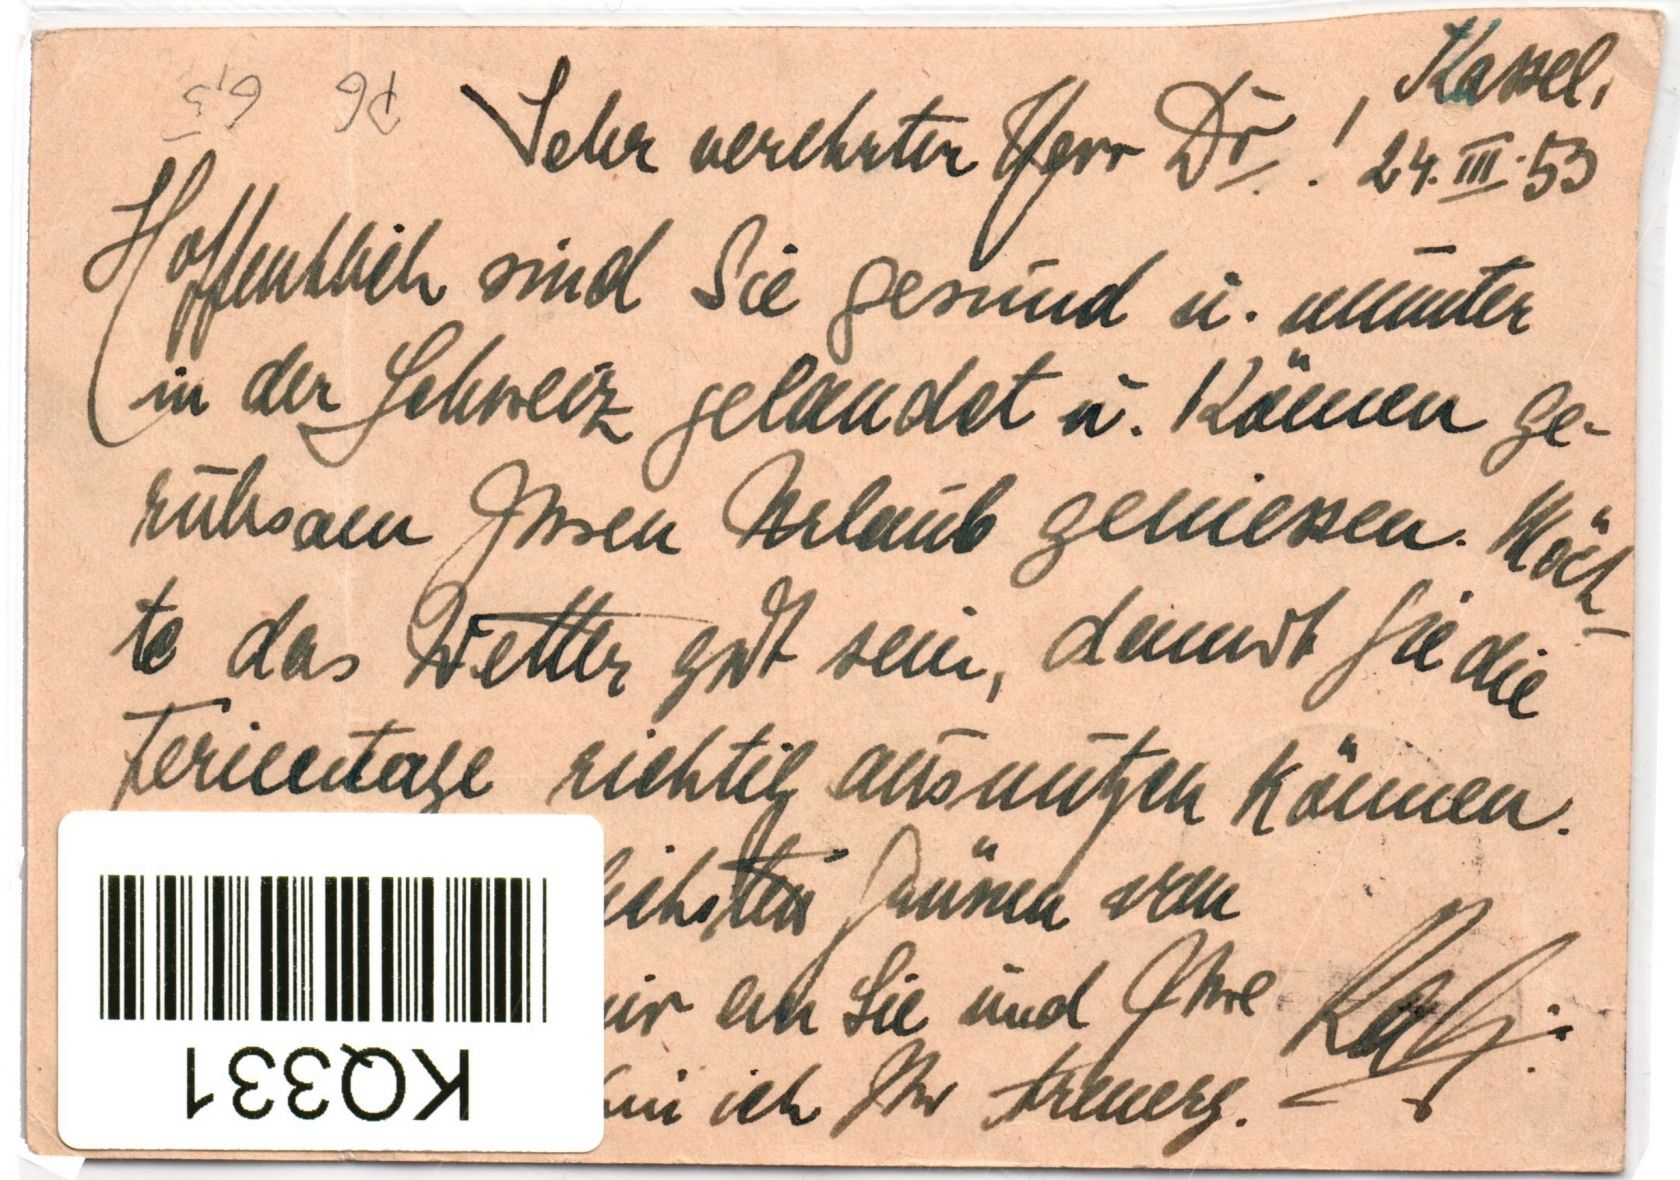 Kassel,
24. III. 53
Sehr verehrter Herr Dr.!
Hoffentlich sind Sie gesund u. munter
in der Schweiz gelandet u. können ge-
ruhsam Ihren Urlaub geniessen. Möch-
te das Wetter gut sein, damit Sie die
Ferientage richtig ausnutzen können.
lichsten Grüssen von
mir an Sie und Ihre
bin ich Ihr treuerg.
KQ331